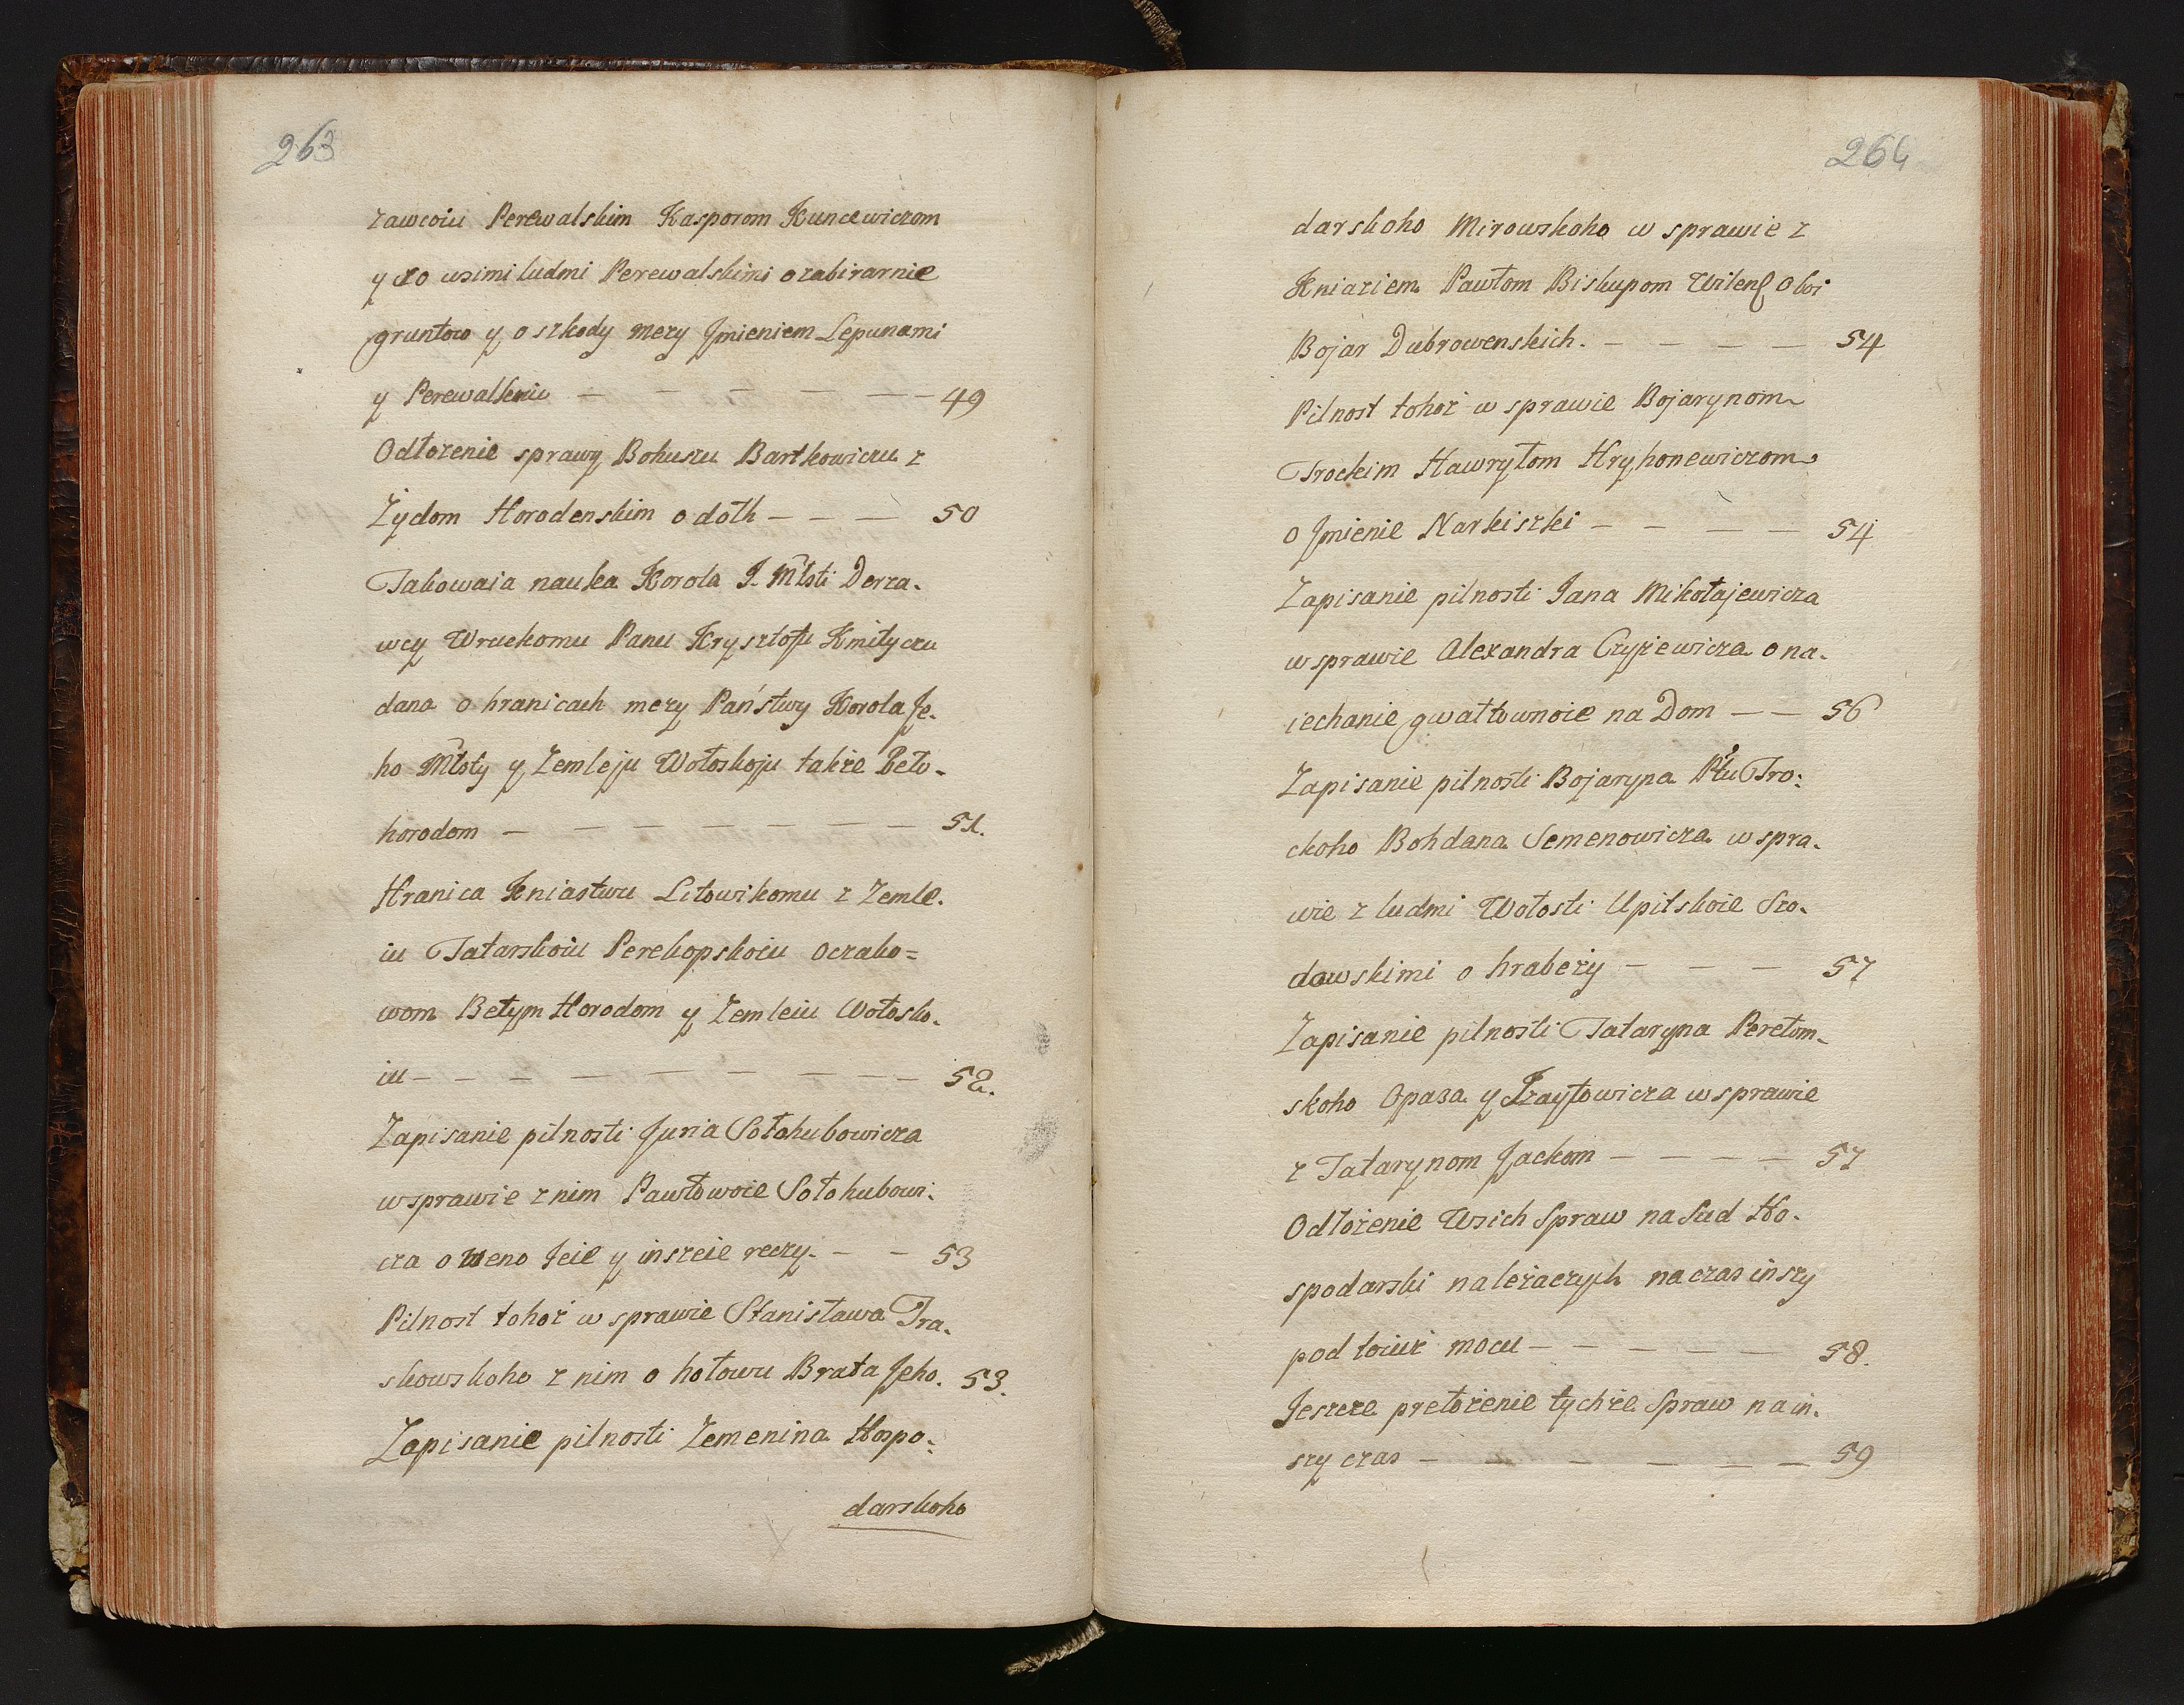 263
zawcoiu Perewalskim Kasporom Kuncewiczom
y zo wsimi ludmi Perewalskimi o zabirarnie
gruntow y o szkody mezy Jmieniem Lepunami
y — — — — — — 49
Odłozenie sprawy Bohuszu Bartkowiczu z
Żydom Horodenskim o dołh — — — 50
Takowaia nauka Korola J. Młsti Derza-
wcy Wruckomu Panu Krysztofu Kmityczu
dana o hranicach mezy Państwy Korola Je-
ho Młsty y Zemleju Wołoskoju także Beło-
horodom — — — — — — — 51.
Hranica Kniastwu Litowskomu z Zemle-
iu Tatarskoiu Perekopskoiu Oczako=
wom Bełym Horodom y Zemleiu Wołosko-
iu — — — — — — — — 52.
Zapisanie pilnosti Juria Sołohubowicza
w sprawie z nim Pawłowoie Sołohubowi-
cza o weno Jeie y inszeie reczy. — — 53
Pilnost tohoż w sprawie Stanisława Tra-
skowskoho z nim o hołowu Brata Jeho. 53.
Zapisanie pilnosti Zemenina Hospo-
darskoho
264
darskoho Mirowskoho w sprawie z
Kniaziem Pawłom Biskupom Wilens oboi
Bojar Dubrowenskich. — — — — 54
Pilnost tohoż w sprawie Bojarynom
Trockim Hawryłom Hryhonewiczom
o Jmienie Narkiszki — — — — 54
Zapisanie pilnosti Jana Mikołajewicza
w sprawie Alexandra Czyżewicza o na-
iechanie gwałtownoie na Dom — — 56
Zapisanie pilnosti Bojaryna Płu Tro-
ckoho Bohdana Semenowicza w spra-
wie z ludmi Wołosti Upitskoie Szo-
dowskimi o hrabeży — — — 57
Zapisanie pilnosti Tataryna Perełom-
skoho Opaza y w sprawie
z Tatarynom Jackom — — — — 57
Odłożenie Wsich Spraw na Sud Ho-
spodarski należaczych na czas inszy
pod toiuż mocu — — — — — 58.
Jeszcze prełożenie tychże Spraw na in-
szy czas — — — — — — 59